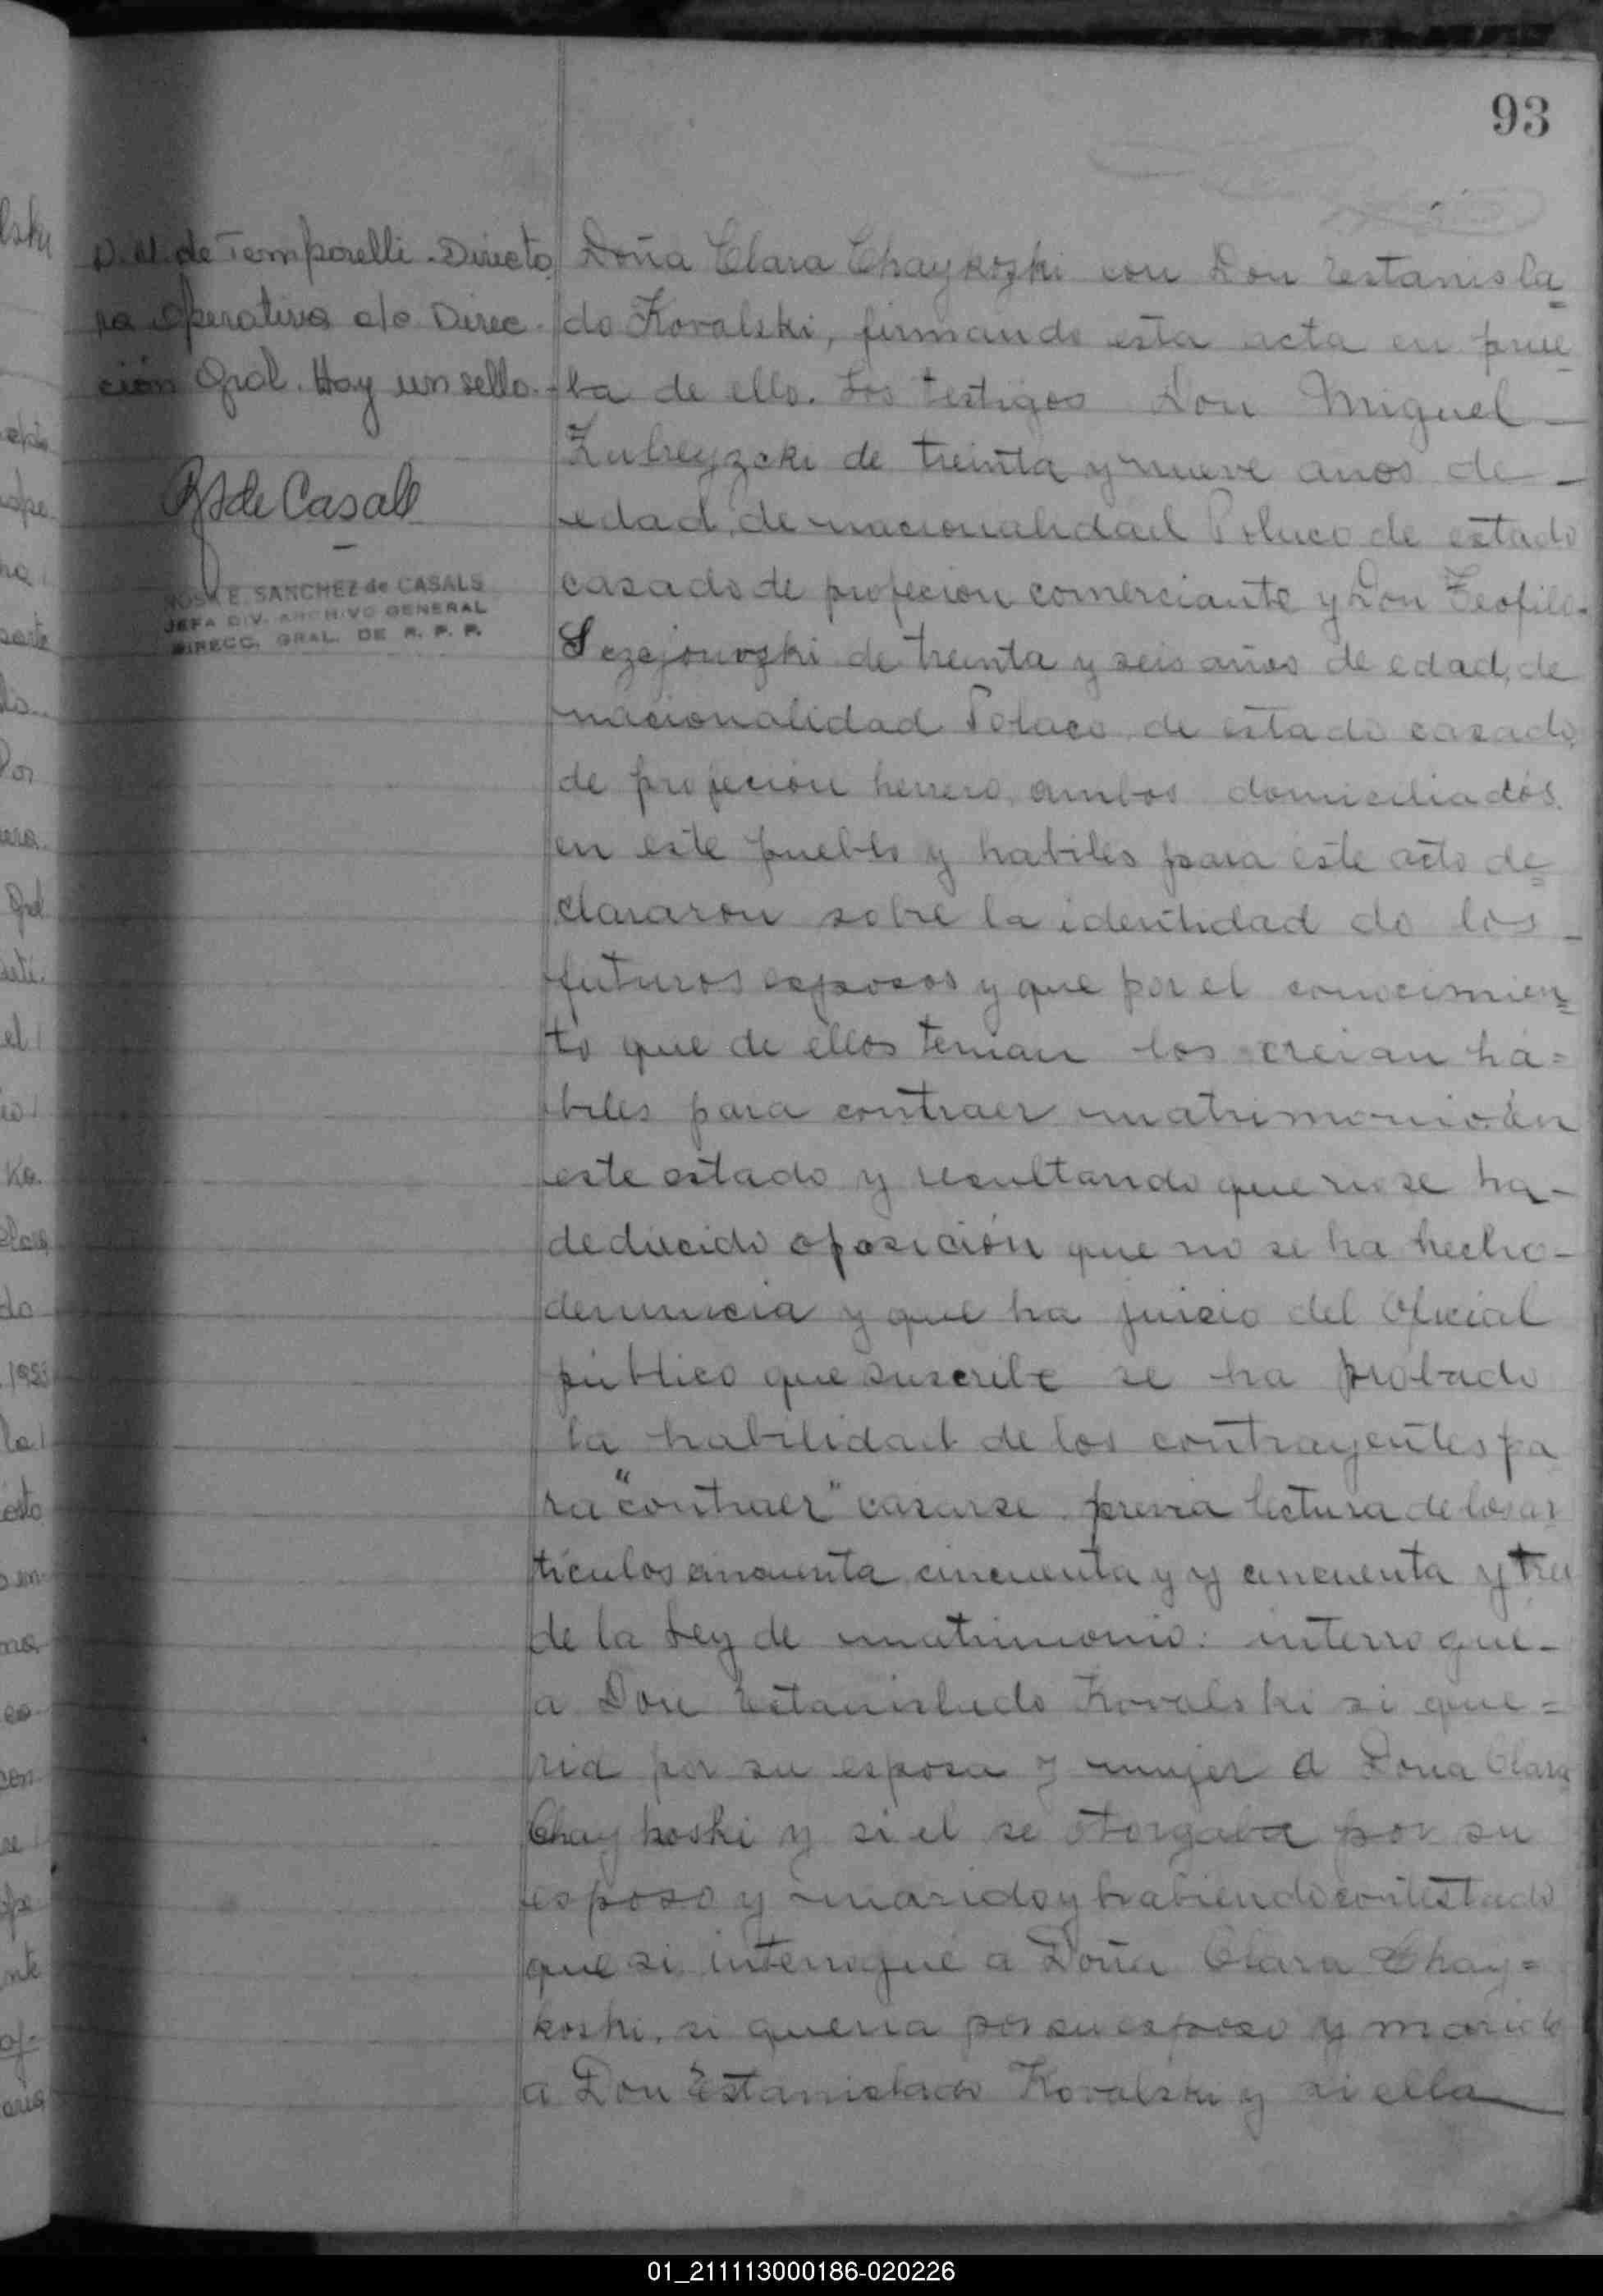 93
D. M. de Temporelli. Directo
ra Operativa a/c Direc-
ción Gral. Hay un sello.-
de Casals
E. SANCHEZ de CASALS
JEFA DIV. ARCHIVO GENERAL
DIRECC. GRAL. DE R. P. P.
Doña Clara Chaykoski con Don Estanisla=
do Kovalski, firmando esta acta en prue=
ba de ello. Los testigos Don Miguel -
Zubreyzcki de treinta y nueve anos de -
edad, de nacionalidad Polaco de estado
casado de profecion comerciante y Don Teofilo-
de treinta y seis años de edad, de
nacionalidad Polaco, de estado casado,
de profecion herrero, ambos domiciliados
en este pueblo y habiles para este acto de=
clararon sobre la identidad de los -
futuros esposos y que por el conocimien=
to que de ellos tenian los creian há=
biles para contraer matrimonio. En
este estado y resultando que no se ha-
deducido oposición que no se ha hecho-
denuncia y que ha juicio del Oficial
público que suscribe se ha probado
la habilidad de los contrayentes pa
ra "contraer" casarse previa lectura de los ar
tículos cincuenta, cincuenta y y cincuenta y tres
de la Ley de matrimonio: interrogué-
a Don Estanislado Kovalski si que=
ria por su esposa y mujer a Doña Clara
Chaykoski y si el se otorgaba por su
esposo y marido y habiendo contestado
que si interrogué a Doña Clara Chay=
koski, si queria por su esposo y marido
a Don Estanislado Kovalski y si ella
lski
1953
01_211113000186-020226